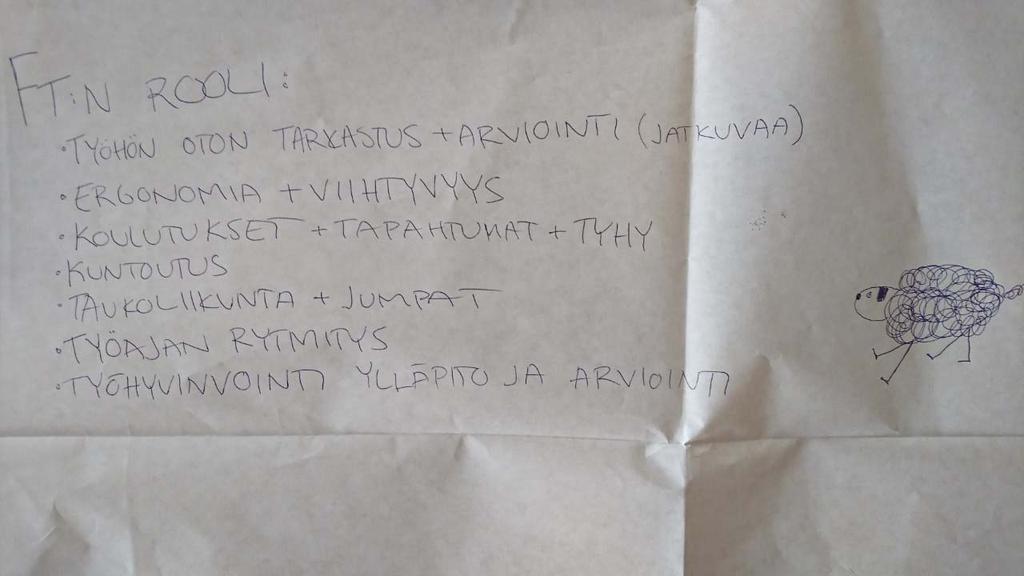 FT:N ROOLI:
• TYÖHÖN OTON TARKASTUS + ARVIOINTI (JATKUVAA)
• ERGONOMIA + VIIHTYVYYS
• KOULUTUKSET + TAPAHTUMAT + TYHY
• KUNTOUTUS
• TAUKOLIIKUNTA + JUMPAT
• TYÖAJAN RYTMITYS
• TYÖHYVINVOINTI YLLÄPITO JA ARVIOINTI